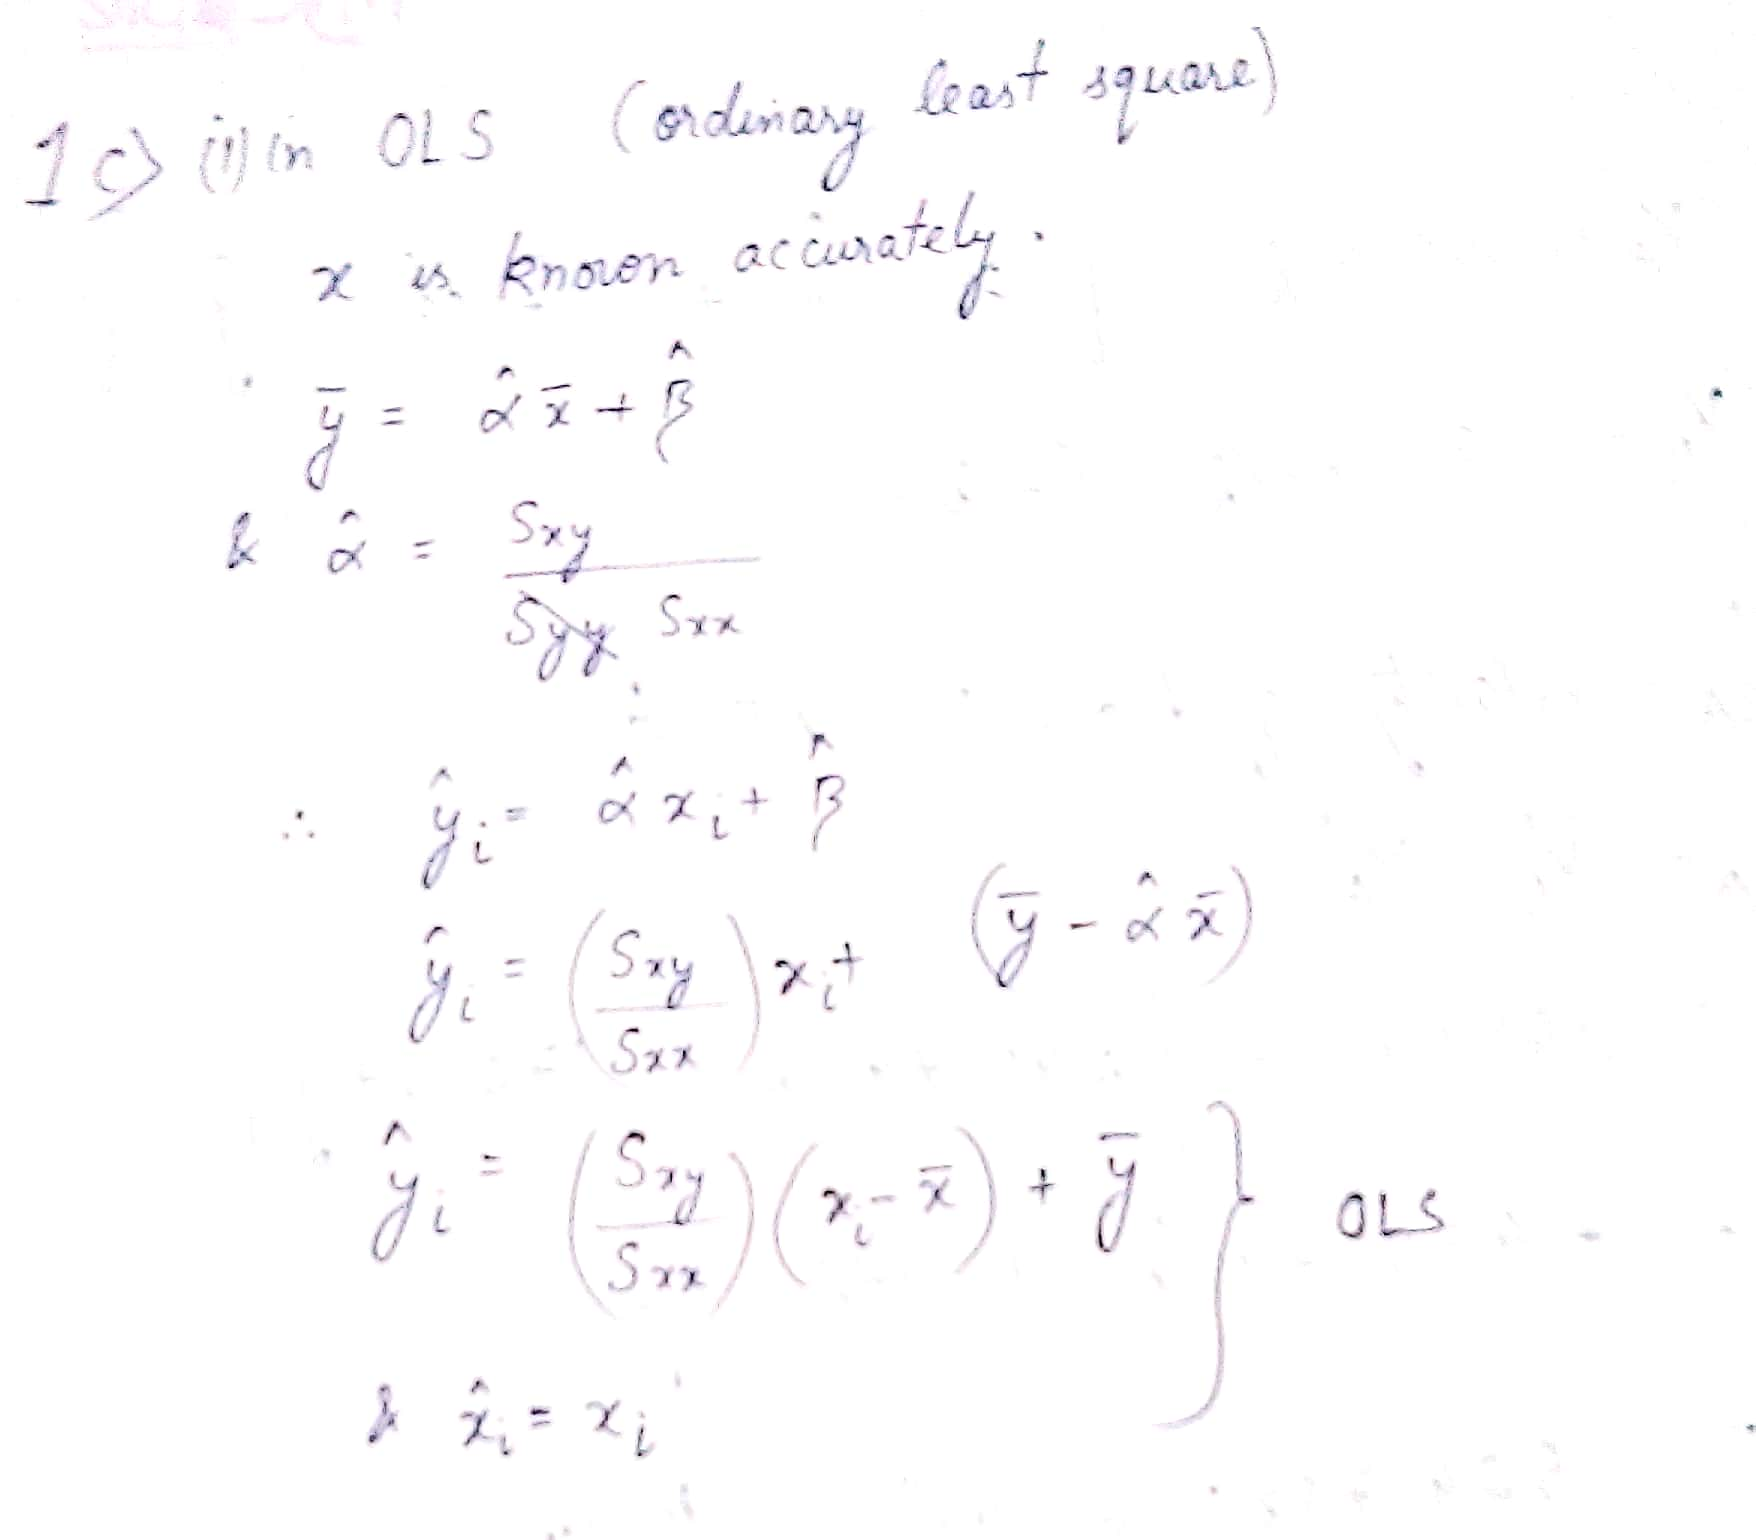 1c) (i) in OLS (ordinary least square)
x is known accurately.
ȳ = α̂ x̄ + β̂
& α̂ = Sxy / Sxx
∴ ŷi = α̂ xi + β̂
ŷi = (Sxy / Sxx) xi + (ȳ - α̂ x̄)
ŷi = (Sxy / Sxx) (xi - x̄) + ȳ } OLS
& x̂i = xi